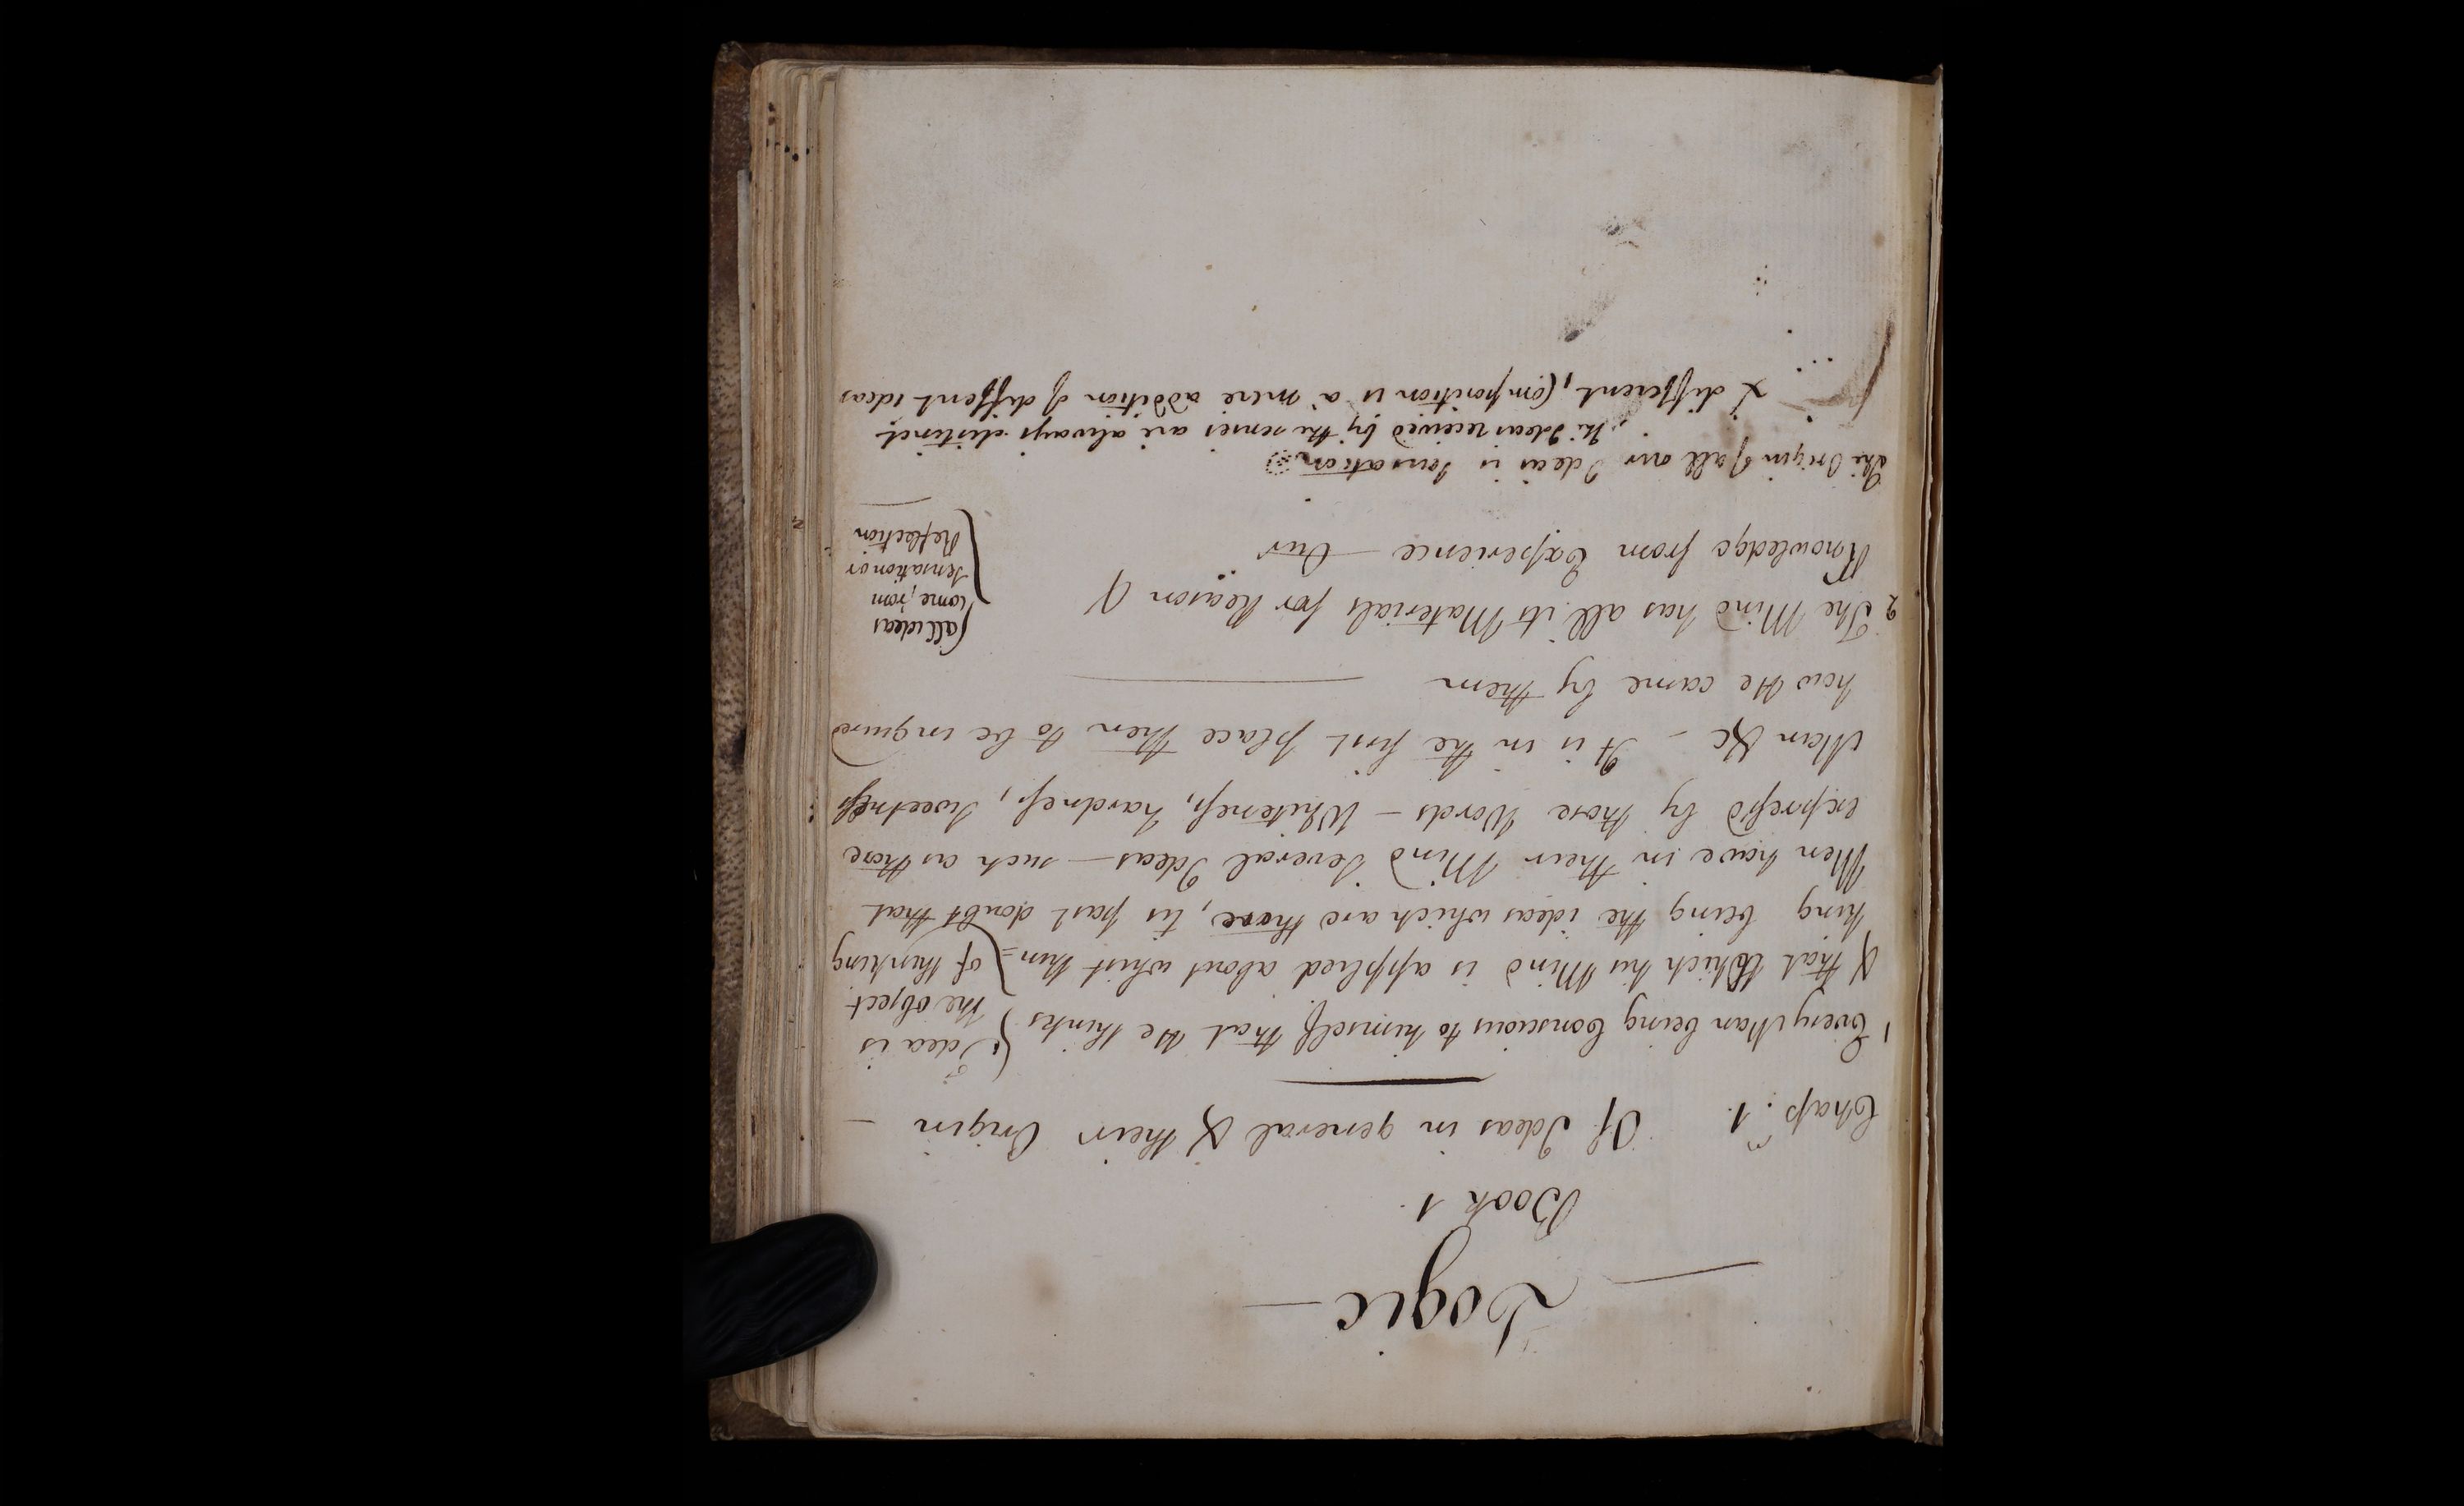 Logic —
Book 1.
Chap: 1. Of Ideas in general & their Origin —
1 Every Man being Conscious to himself, that He thinks
{Idea is
the object
of thinking
& that Which his Mind is applied about whilst thin=
king being the ideas which are there, tis past doubt that
Men have in their Mind several Ideas — such as those
expreſs'd by those Words — Whiteneſs, hardneſs, Sweetneſs
Man &c — It is in the first place then to be inquired
how He came by them
2 The Mind has all its Materials for Reason &
Knowledge from Experience — Our
{all ideas
come from
Sensation or
Reflection
The Origin of all our Ideas is Sensation
The Ideas received by the senses are always distinct
& different, Composition is a mere addition of diffent ideas